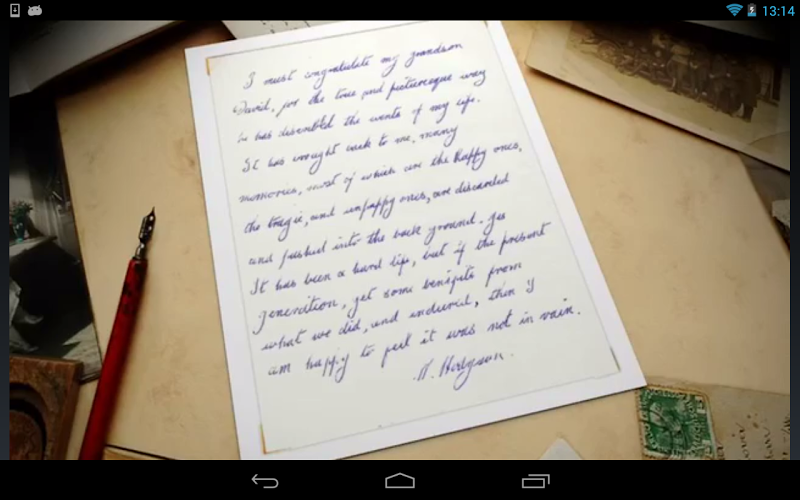 13:14
I must congratulate my grandson
David, for the true and picturesque way
he has described the events of my life.
It has brought back to me, many
memories, most of which are the happy ones,
the tragic, and unhappy ones, are discarded
and pushed into the back ground. Yes
It has been a hard life, but if the present
generation, get some benefits from
what we did, and endured, then I
am happy to feel it was not in vain.
Hodgson.